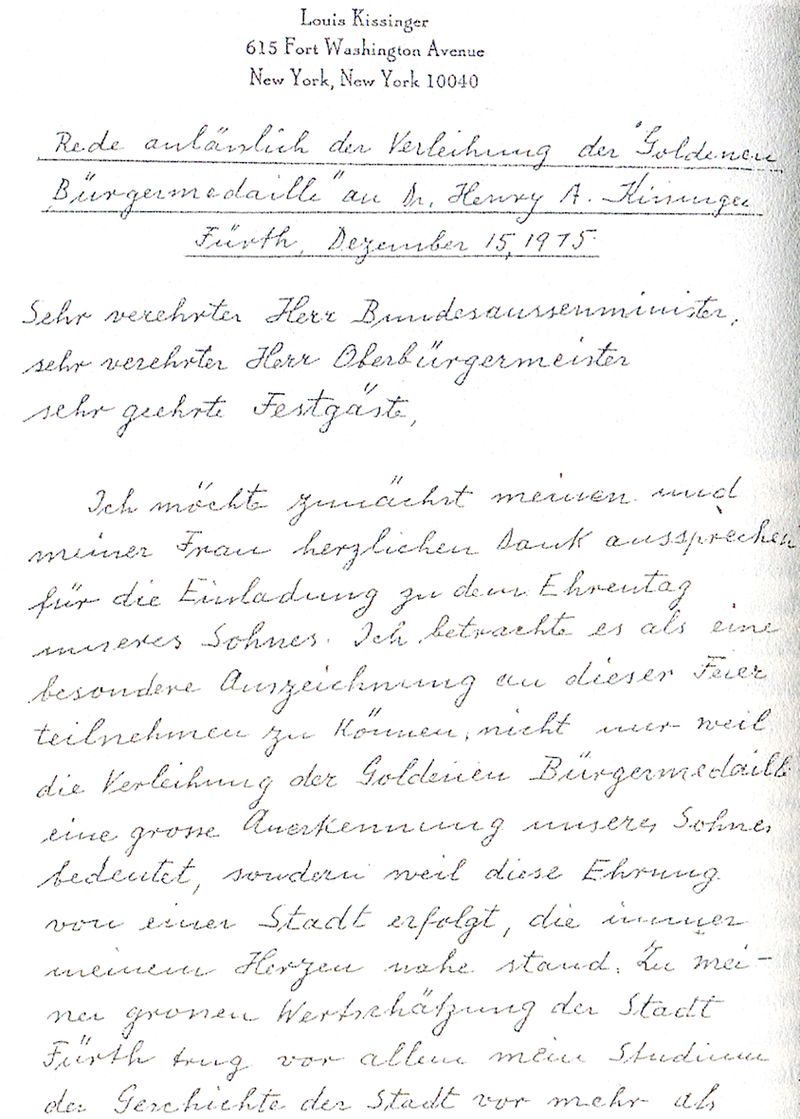 Louis Kissinger
615 Fort Washington Avenue
New York, New York 10040
Rede anlässlich der Verleihung der "Goldenen
Bürgermedaille" an Dr. Henry A. Kissinger
Fürth, Dezember 15, 1975
Sehr verehrter Herr Bundesaussenminister,
sehr verehrter Herr Oberbürgermeister
sehr geehrte Festgäste,
Ich möchte zunächst meinen und
meiner Frau herzlichen Dank aussprechen
für die Einladung zu dem Ehrentag
unseres Sohnes. Ich betrachte es als eine
besondere Auszeichnung an dieser Feier
teilnehmen zu können, nicht nur weil
die Verleihung der Goldenen Bürgermedaille
eine grosse Anerkennung unseres Sohnes
bedeutet, sondern weil diese Ehrung
von einer Stadt erfolgt, die immer
meinem Herzen nahe stand. Zu mei-
ner grossen Wertschätzung der Stadt
Fürth trug vor allem mein Studium
der Geschichte der Stadt vor mehr als